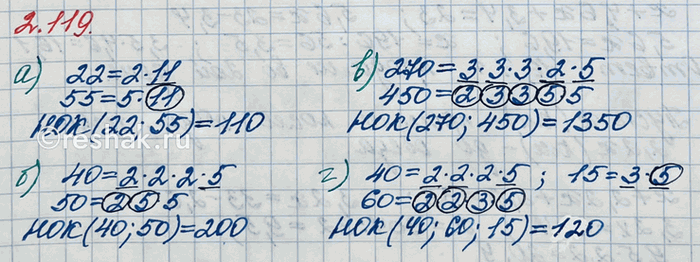 2.119.
а) 22=2·11
55=5·11
НОК(22; 55)=110
б) 40=2·2·2·5
50=2 5 5
НОК(40; 50)=200
в) 270=3·3·3·2·5
450=2 3 3 5 5
НОК(270; 450)=1350
г) 40=2·2·2·5 ; 15=3·5
60=2 2 3 5
НОК(40; 60; 15)=120
Reshak.ru